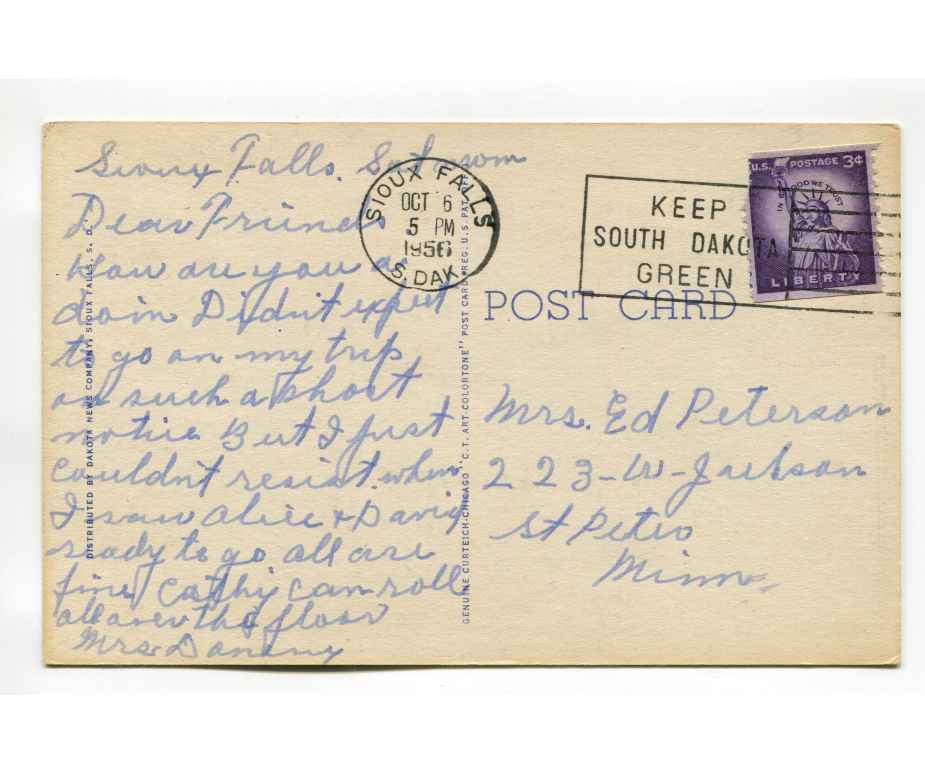 Sioux Falls. Sat
Dear Friends
How are you an
doin Didn't expect
to go on my trip
on such a short
notice But I just
couldn't resist. when
I saw Alice + David
ready to go all are
fine Cathy can roll
all over the floor
Mrs
SIOUX FALLS
OCT 6
5 PM
1956
S. DAK.
KEEP
SOUTH DAKOTA
GREEN
U.S. POSTAGE 3¢
IN GOD WE TRUST
LIBERTY
POST CARD
Mrs. Ed Peterson
223-W-Jackson
St Peter
Minn
DISTRIBUTED BY DAKOTA NEWS COMPANY, SIOUX FALLS, S. D.
GENUINE CURTEICH-CHICAGO "C.T. ART-COLORTONE" POST CARD REG. U.S. PAT.